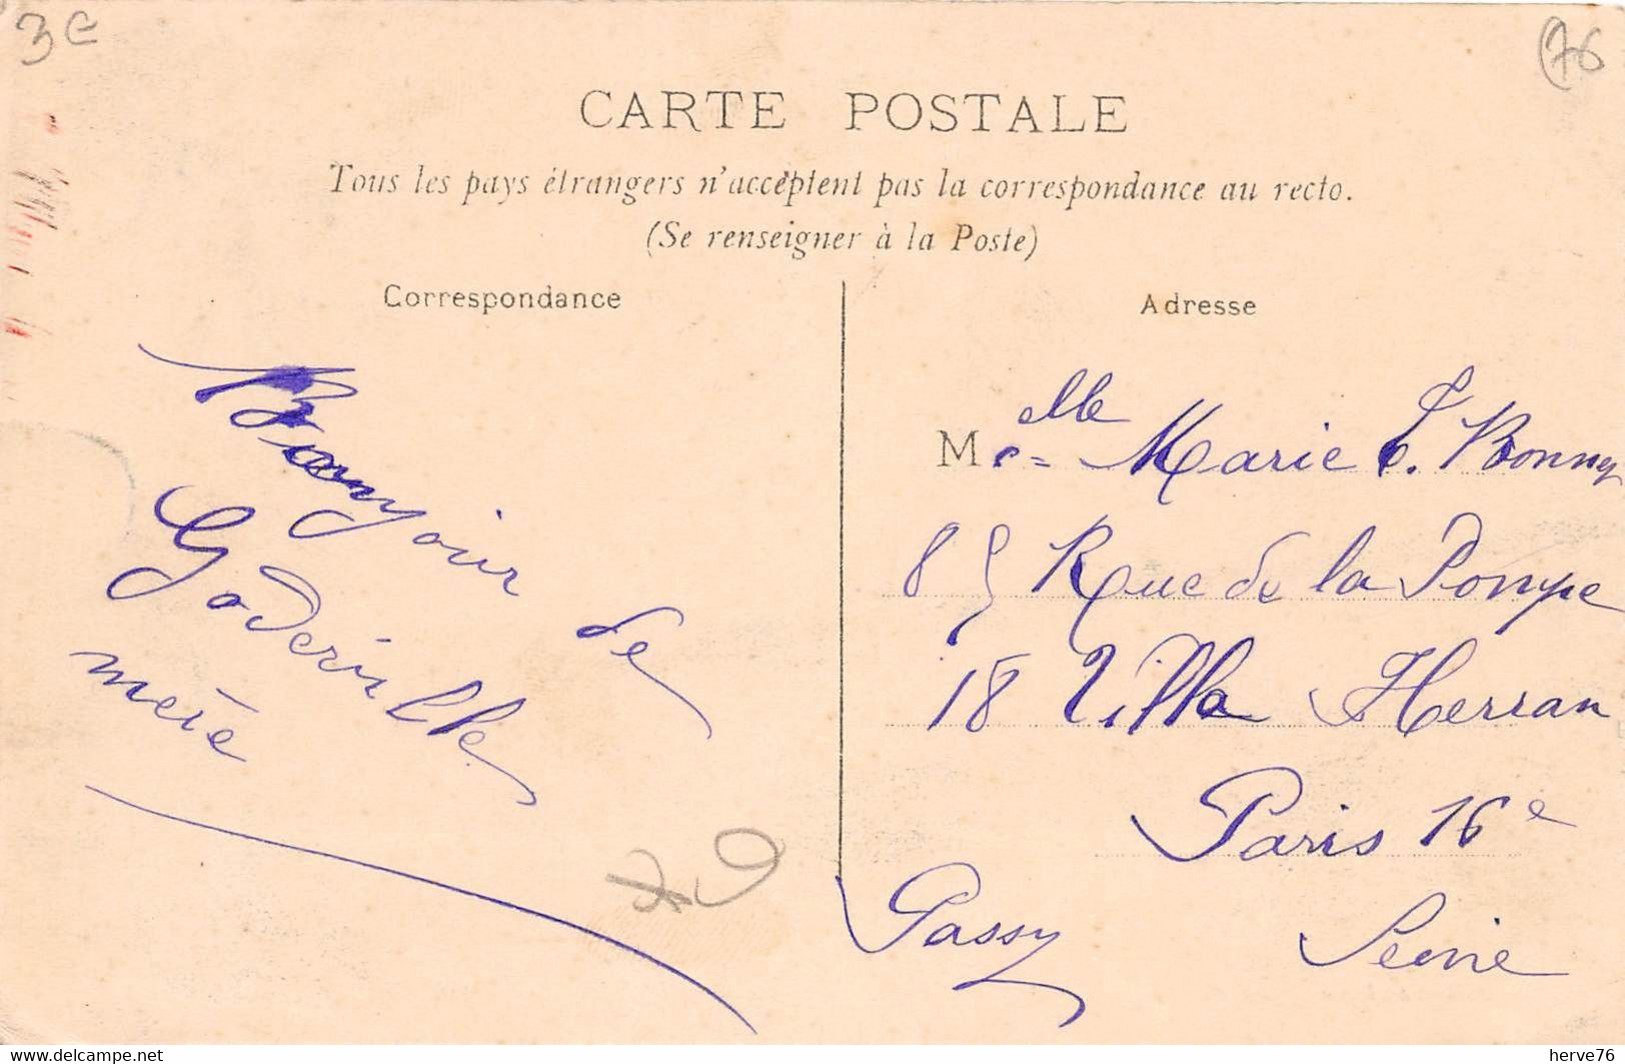 3 €
(76
CARTE POSTALE
Tous les pays étrangers n'acceptent pas la correspondance au recto.
(Se renseigner à la Poste)
Correspondance
Bonjour de
Goderville
mère
Adresse
Melle Marie L. Bonney
85 Rue de la Pompe
18 Villa Herran
Paris 16e
Passy Seine
www.delcampe.net
herve76